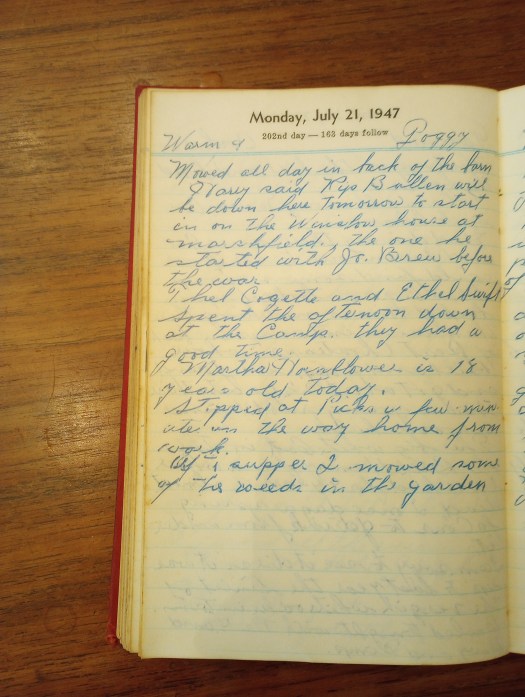 Monday, July 21, 1947
202nd day — 163 days follow
Warm & Foggy
Mowed all day in back of the barn
Mary said Kip Bullen will
be down here tomorrow to start
in on the Winslow house at
Marshfield, the one he
started with Jo. before
the war.
Thel Cogette and Ethel Swift
spent the afternoon down
at the Camp. they had a
good time.
Martha Hornblower is 18
years old today.
Stopped at a few min
utes on the way home from
work.
supper I mowed some
of the weeds in the garden